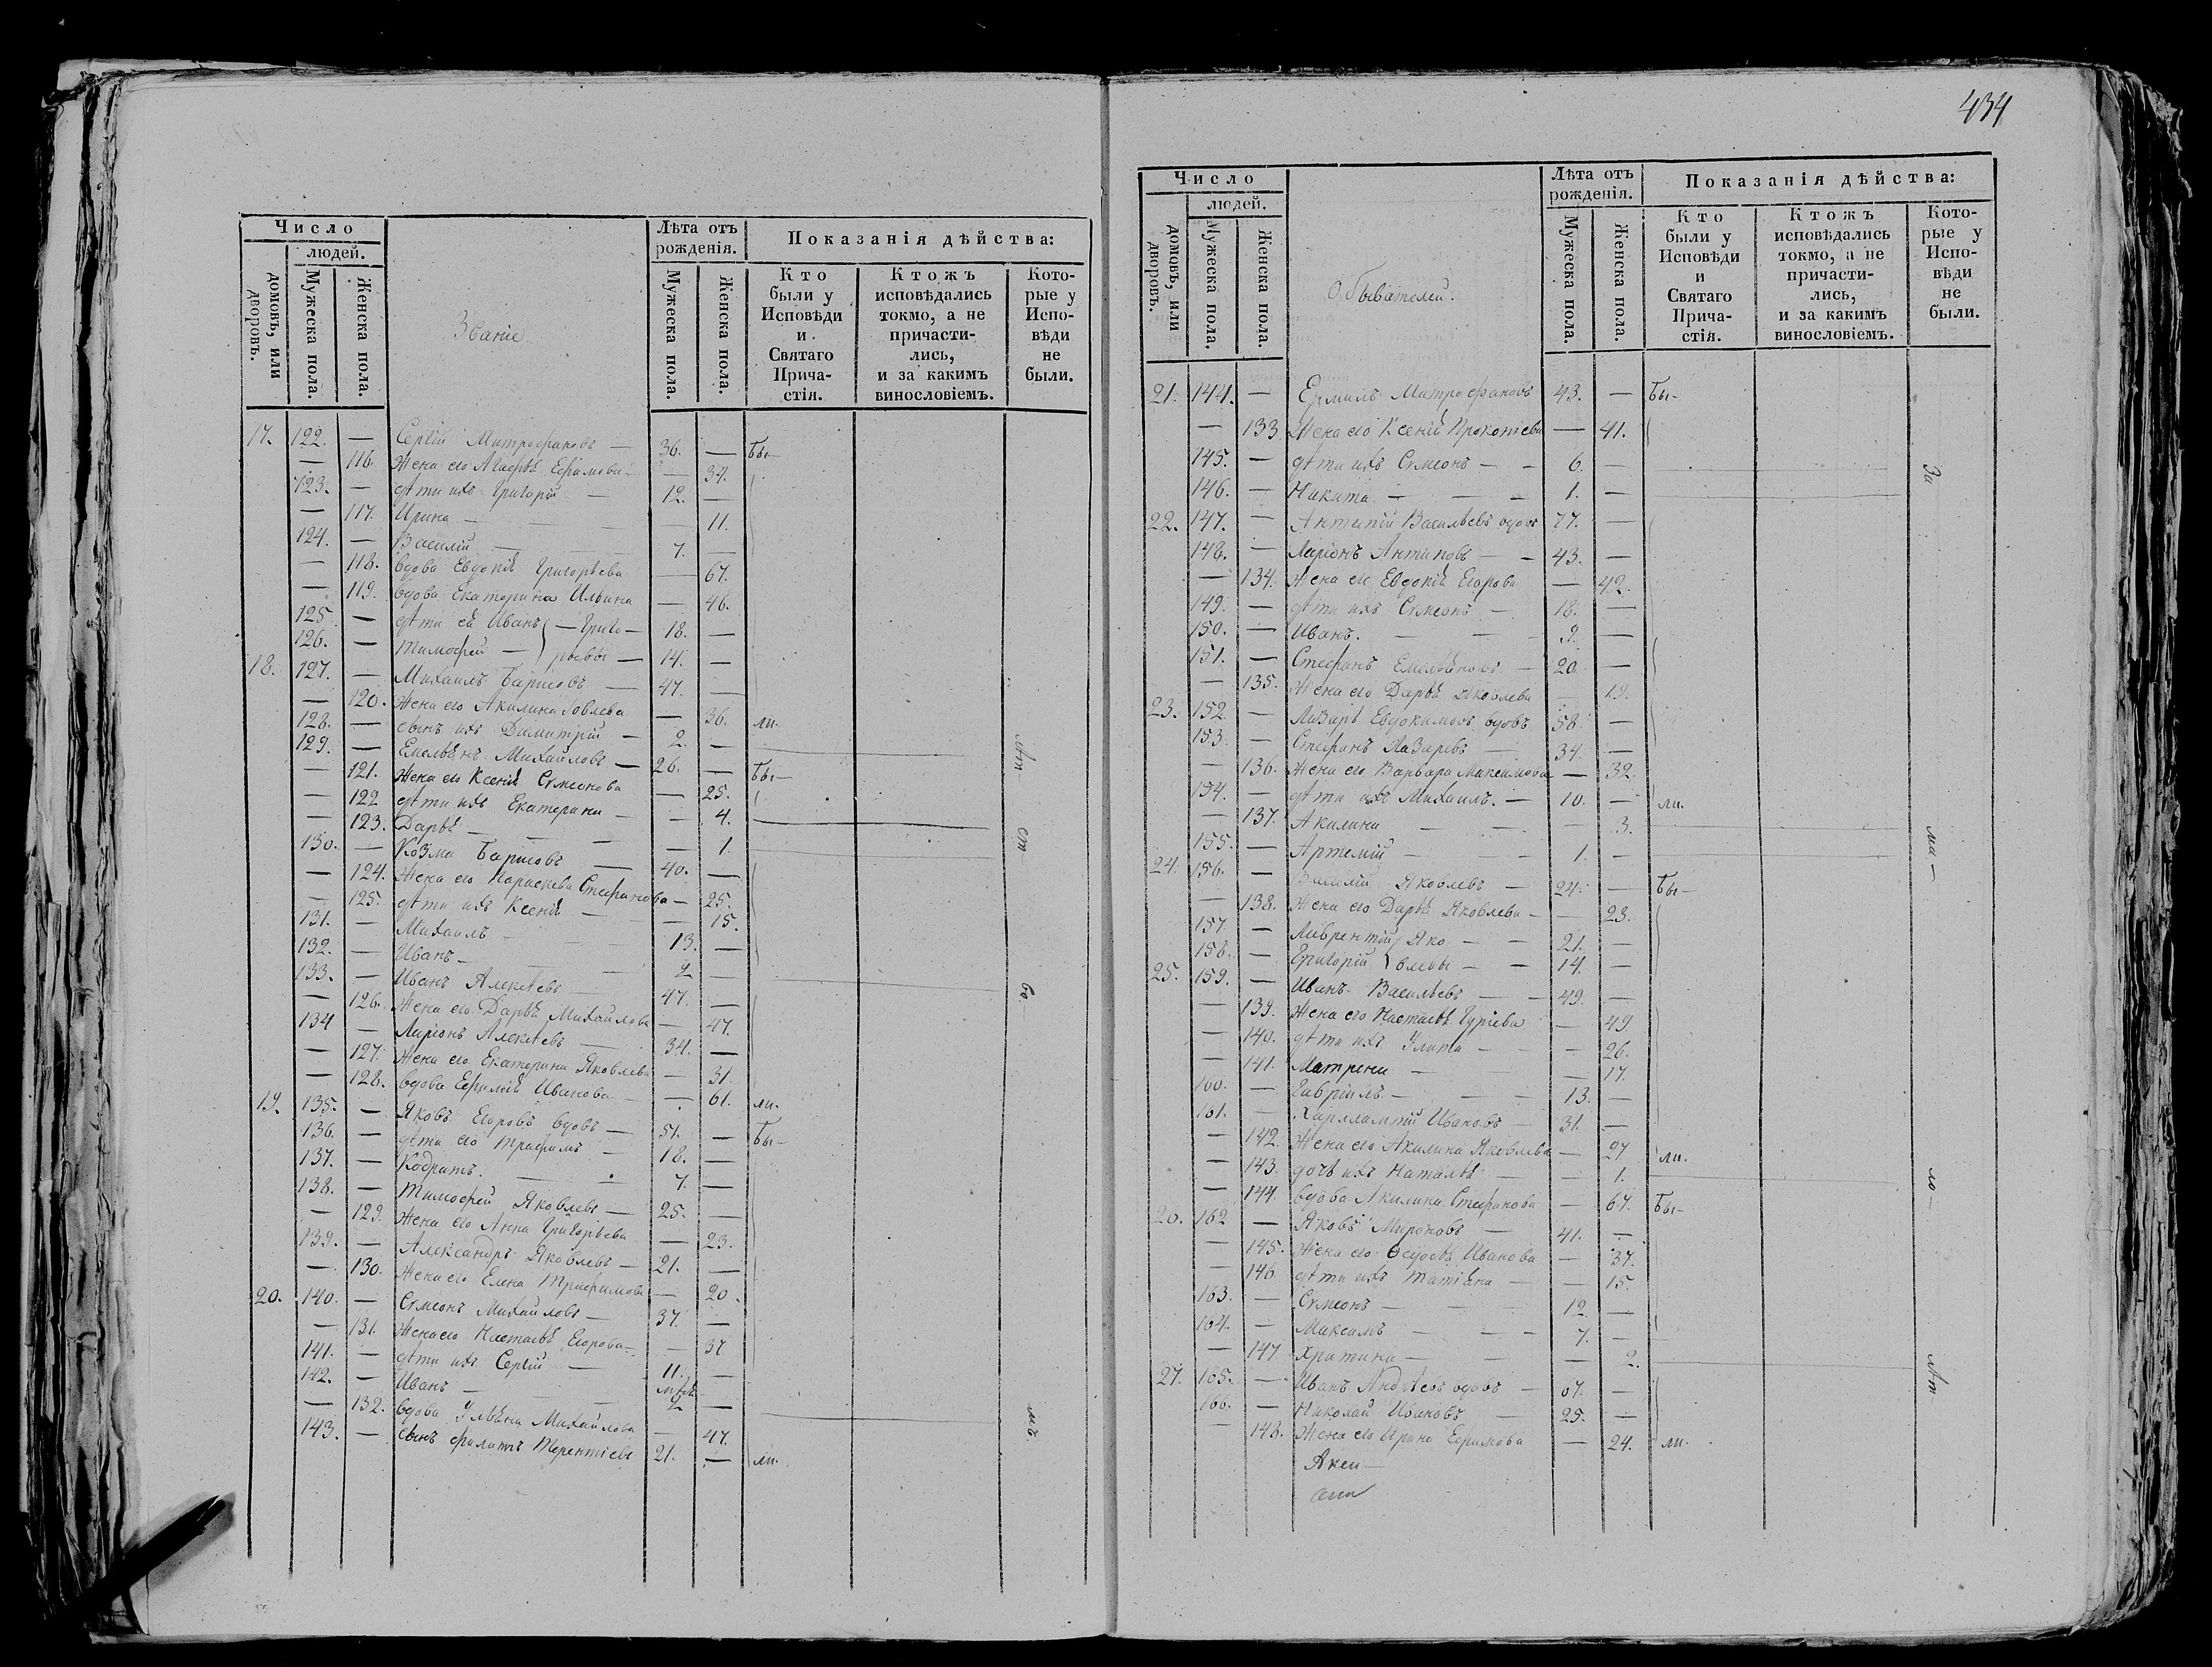 Число
людей.
домовъ, или дворовъ.
Мужеска пола.
Женска пола.
Званіе
Лѣта отъ рожденія.
Мужеска пола.
Женска пола.
Показанія дѣйства:
Кто были у Исповѣди и Святаго Прича-стія.
Ктожъ исповѣдались токмо, а не причасти-лись, и за какимъ винословіемъ.
Кото-рые у Испо-вѣди не были.
17. 122. — Сергій Митрофановъ — 36. — Бы-
— 116. Жена его Агафья Ефимова — — 34.
123. — дѣти ихъ Григорій — 12. —
— 117. Ирина — — 11.
124. — Василій — 7. —
— 118. вдова Евдокія Григорьева — 67.
— 119. вдова Екатерина Ильина — 46.
125. — дѣти ея Иванъ — Григо- 18. —
126. — Тимофей — рьевы — 14. —
18. 127. — Михаилъ Борисовъ — 47. —
— 120. Жена его Акилина Іовлева — 36. ли.
128. — сынъ ихъ Димитрій — 2. —
129. — Емельянъ Михайловъ — 26. — Бы-
— 121. Жена его Ксенія Симеонова — 25.
— 122 дѣти ихъ Екатерина — — 4.
— 123. Дарья — — 1.
130. — Козма Борисовъ — 40. —
— 124. Жена его Параскева Стефанова — 25.
— 125. дѣти ихъ Ксенія — — 15.
131. — Михаилъ — 13. —
132. — Иванъ — 2 —
133. — Иванъ Алексѣевъ — 47. —
— 126. Жена его Дарья Михайлова — 47.
134 — Ларіонъ Алексѣевъ — 34. —
— 127. Жена его Екатерина Яковлева — 31.
— 128. вдова Ефимія Иванова — — 61. ли.
19. 135. — Яковъ Егоровъ вдовъ — 51. — Бы-
136. — дѣти его Трофимъ — 18. —
137. — Кодратъ. — 7. —
138. — Тимофей Яковлевъ — 25. —
— 129. Жена его Анна Григорьева — 23.
139. — Александръ Яковлевъ — 21. —
— 130. Жена его Елена Трофимова — 20.
20. 140. — Симеонъ Михайловъ — 37. —
— 131. Жена его Настасья Егорова — — 37
141. — дѣти ихъ Сергій — 11. —
142. — Иванъ — 2 —
— 132. вдова Ульяна Михайлова — 47.
143. — сынъ Филипъ Терентіевъ 21. — ли.
434
Число
людей.
домовъ, или дворовъ.
Мужеска пола.
Женска пола.
Обывателей.
Лѣта отъ рожденія.
Мужеска пола.
Женска пола.
Показанія дѣйства:
Кто были у Исповѣди и Святаго Прича-стія.
Ктожъ исповѣдались токмо, а не причасти-лись, и за какимъ винословіемъ.
Кото-рые у Испо-вѣди не были.
21. 144. — Ермилъ Митрофановъ 43. — Бы-
— 133. Жена его Ксенія Прокопіева — 41.
145. — дѣти ихъ Симеонъ — 6. —
146. — Никита — 1. —
22. 147. — Антипій Васильевъ вдовъ 77. —
148. — Ларіонъ Антиповъ — 43. —
— 134. Жена его Евдокія Егорова — 42.
149. — дѣти ихъ Симеонъ — 18. —
150. — Иванъ. — 9. —
151. — Стефанъ Емельяновъ — 20. —
— 135. Жена его Дарья Яковлева — 19.
23. 152. — Лазарь Евдокимовъ вдовъ 58. —
153. — Стефанъ Лазаревъ — 34. —
— 136. Жена его Варвара Максимова — 32.
154. — дѣти ихъ Михаилъ. — 10. — ли.
— 137. Акилина — — 3.
155. — Артемій — 1. —
24. 156. — Василій Яковлевъ — 24. — Бы-
— 138. Жена его Дарья Яковлева — — 23.
157. — Лаврентій Яко- — 21. —
158. — Григорій влевы — 14. —
25. 159. — Иванъ Васильевъ — 49. —
— 139. Жена его Настасья Гуріева — 49
— 140. дѣти ихъ Улита — — 26.
— 141. Матрена — — 17.
160. — Гавріилъ — 13. —
161. — Харлампій Ивановъ — 31. —
— 142. Жена его Акилина Яковлева — 27 ли.
— 143. дочь ихъ Наталья — — 1.
— 144. вдова Акилина Стефанова — 67. Бы-
26. 162 — Яковъ Мироновъ — 41. —
— 145. Жена его Ѳедосья Иванова — 37.
— 146. дѣти ихъ Татіяна — — 15.
163. — Симеонъ — 12. —
164. — Максимъ — 7. —
— 147. Христина — — 2.
27. 165. — Иванъ Андреевъ вдовъ — 67. —
166. — Николай Ивановъ — 25. —
— 148. Жена его Ирина Ефимова — 24. ли.
Акси-